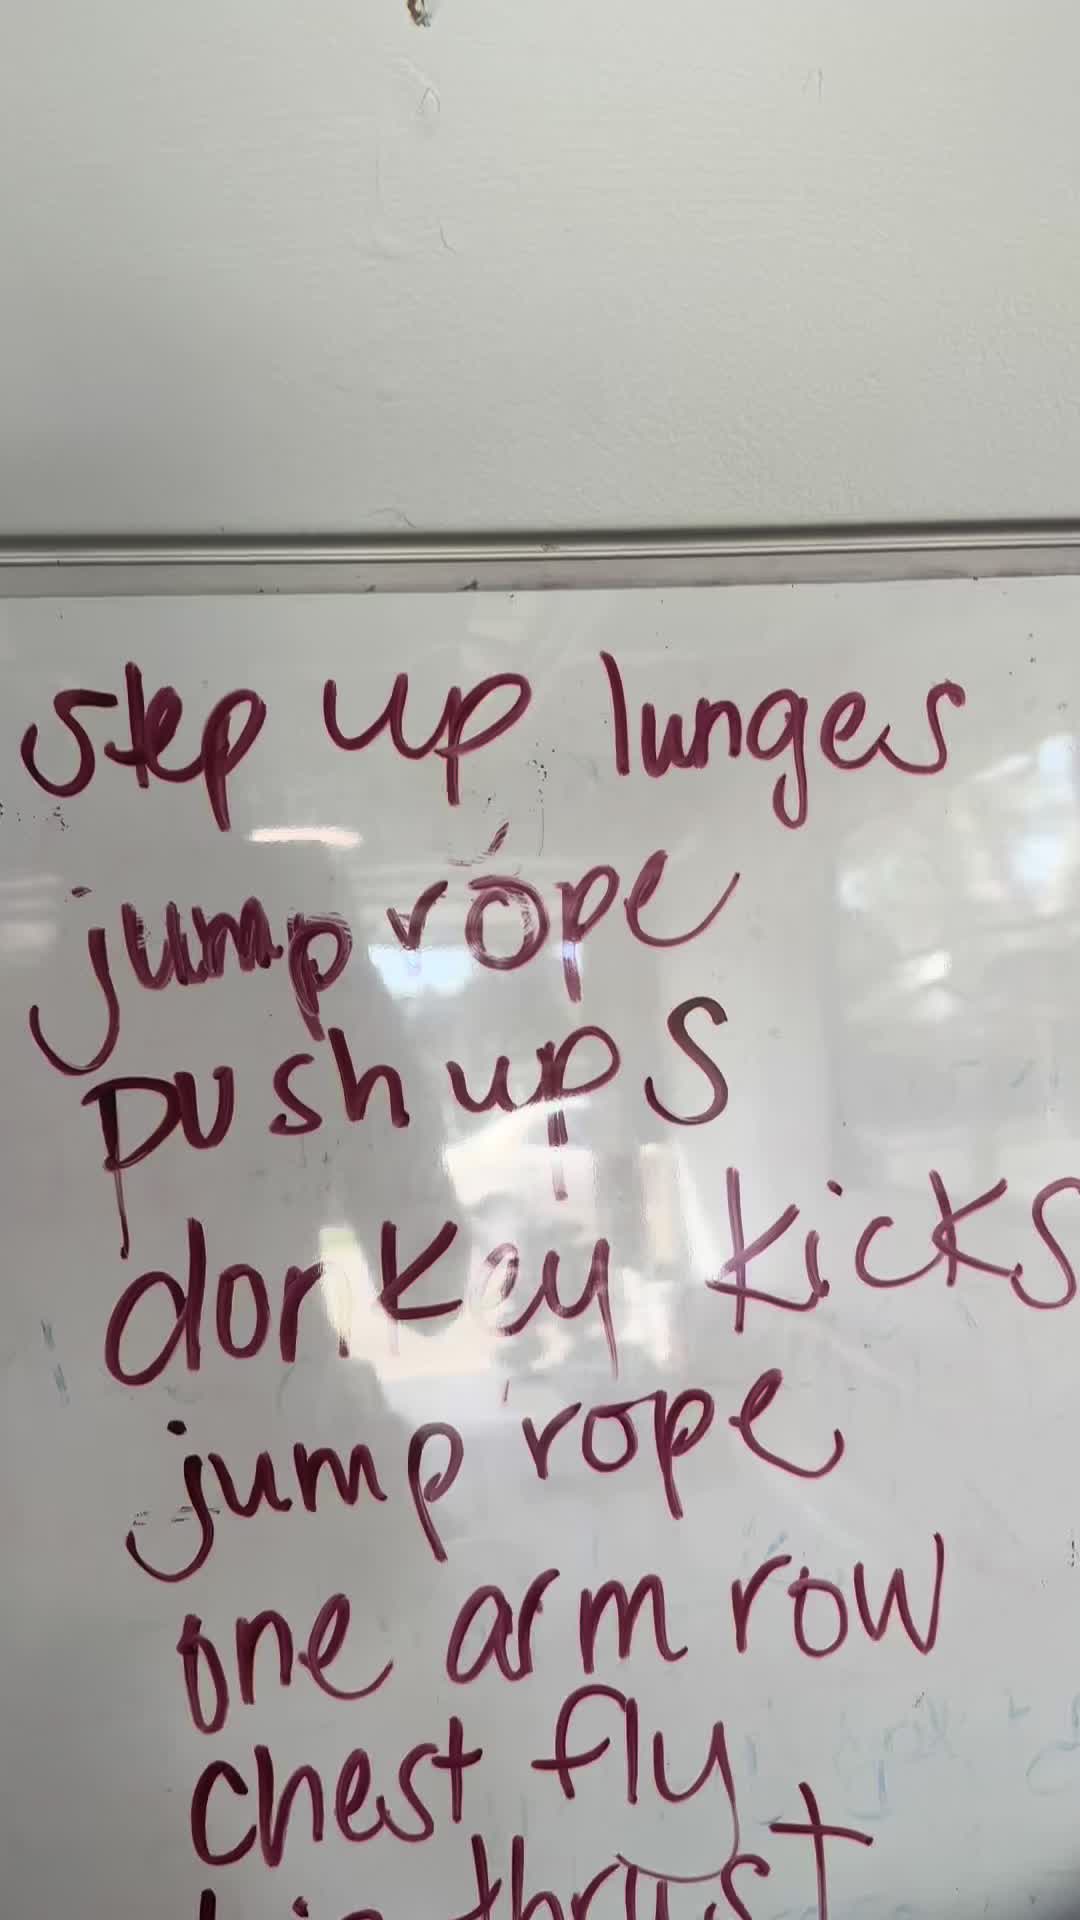 step up lunges
jump rope
push ups
donkey kicks
jump rope
one arm row
chest fly
thrust